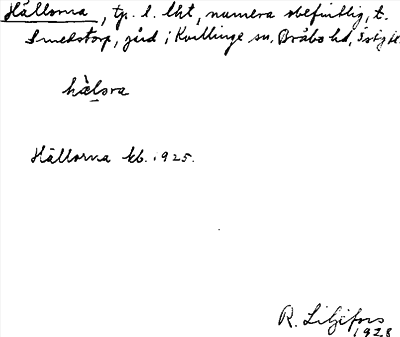 Hållorna, tp. l. lht, numera obefintlig, t.
Smedstorp, gård i Kvillinge sn, Bråbo hd, Östg
hålora
Hållorna kb. 1925.
R. Liljefors
1928